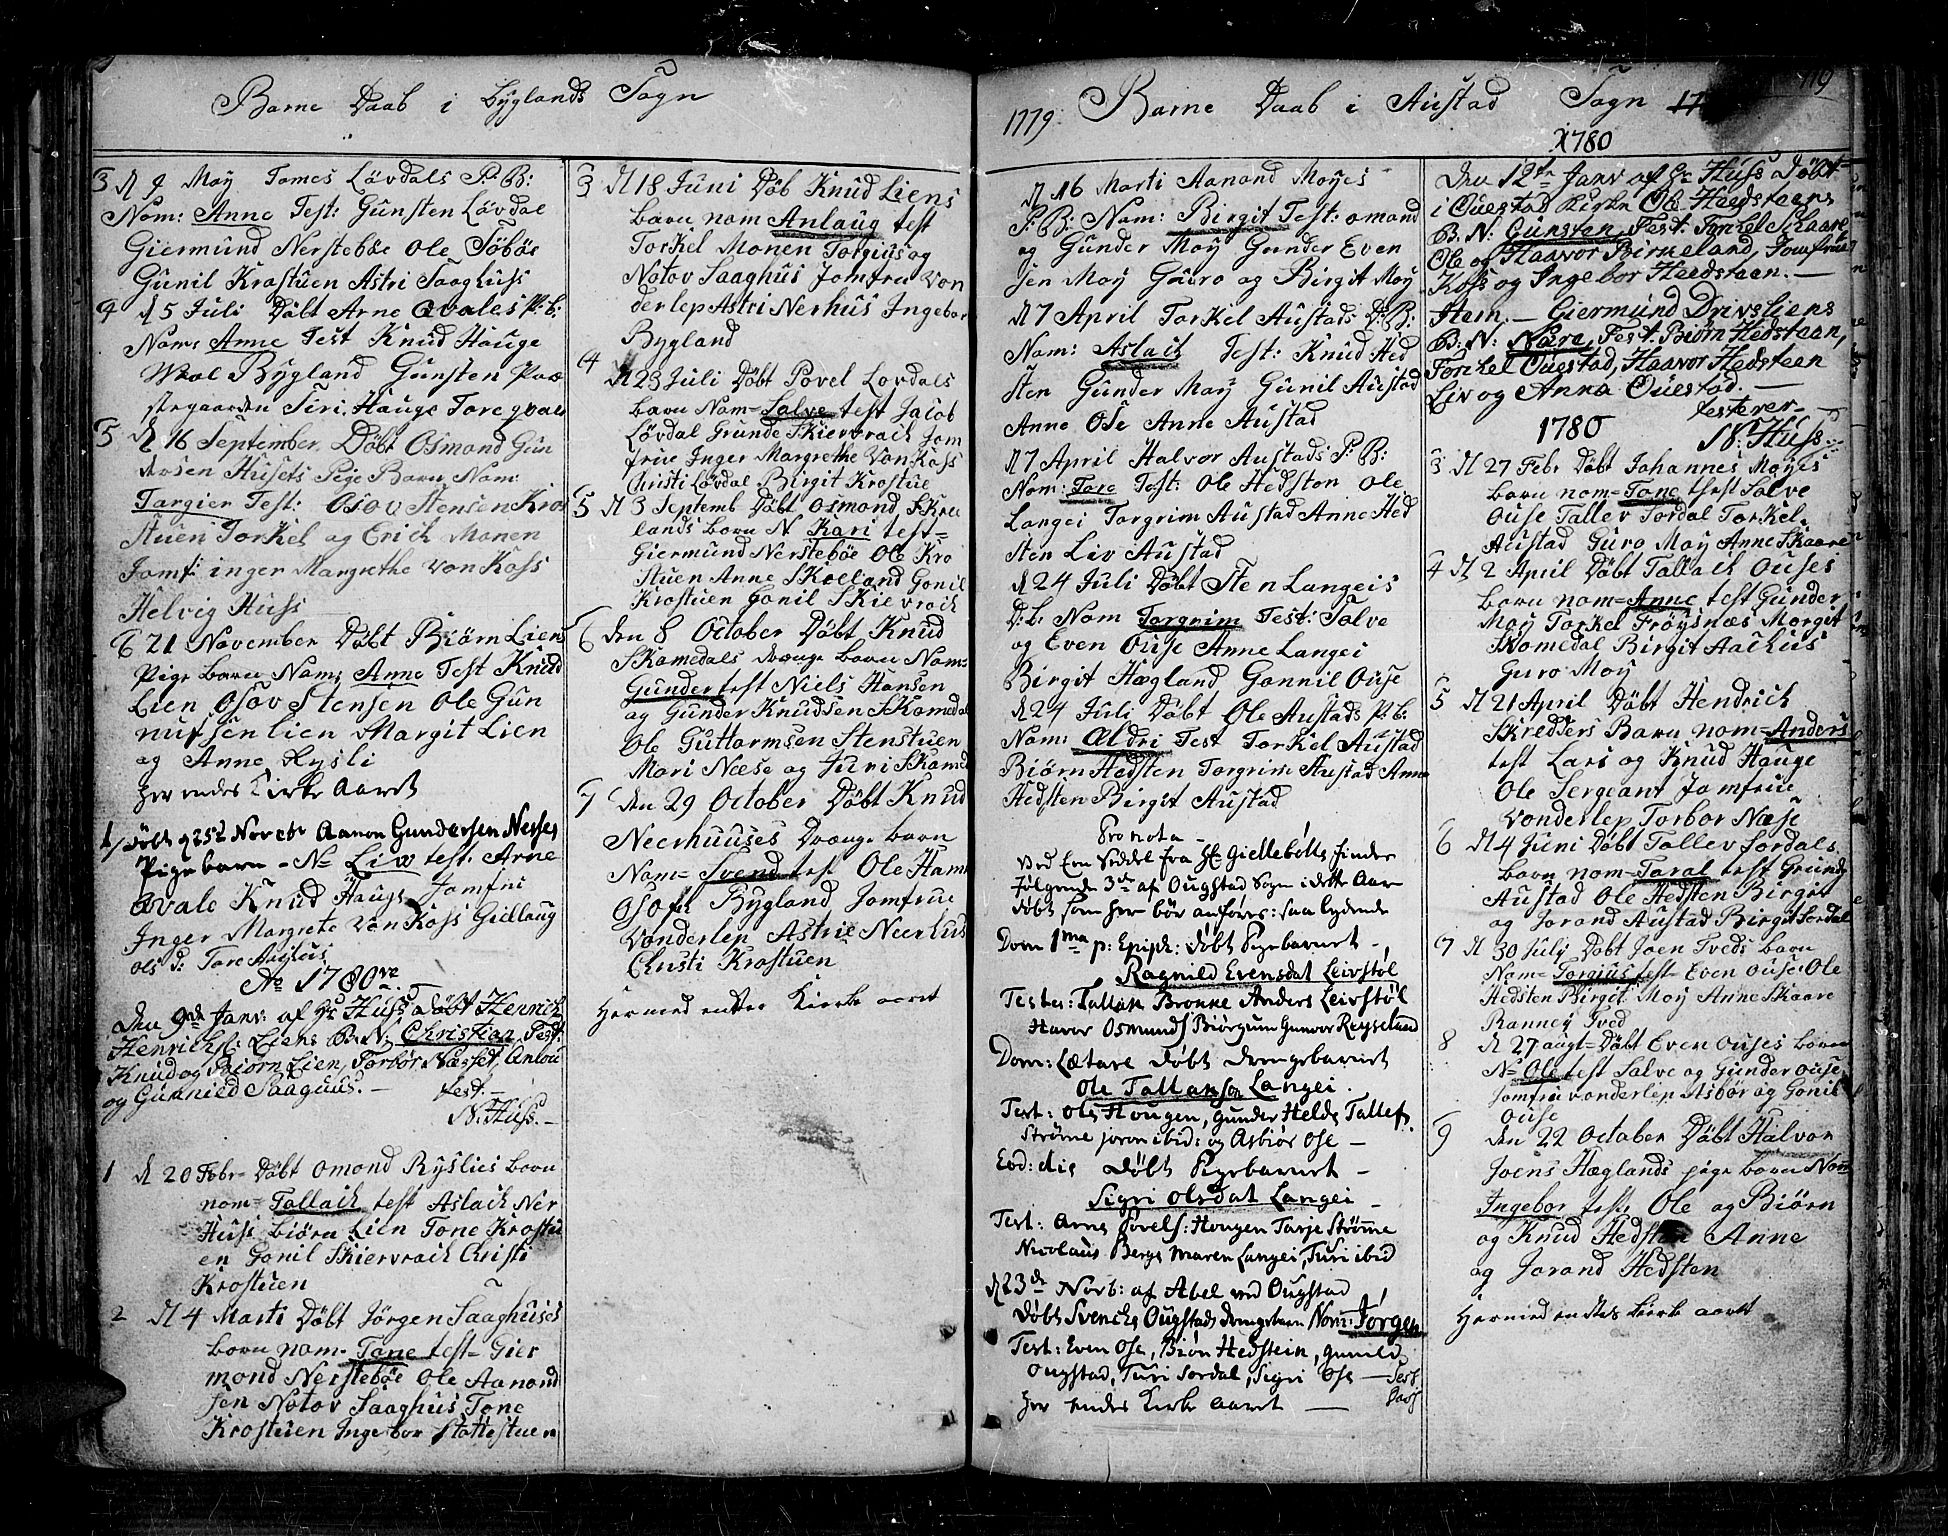 Barne Daab i Byglands Sogn
3 d 9 May Tomes Lövdals P: B:
Nom: Anne Test: Gunsten Lövdal
Giermund Nerstebøe Ole Söbøe
Gunil Krastuen Astri Saaghuss
4 d 5 Juli Döbt Arne Qvales P: b:
Nom: Anne Test Knud Hauge
Bygland Gunsten Præ
stegaarden Siri Hauge Tore qvale
5 d 16 September Döbt Osmond Gun
dersen Husets Pige Barn Nom:
Targier Test: Osov Stensen Kro
stuen Torkel og Erich Monen
Jomf: inger Margrethe von Koss
Helvig Huss
6 21 November Döbt Biörn Liens
Pige barn Nom: Anne Test Knud
Lien Osov Stensen Ole Gun
nufsen lien Margit Lien
og Anne Rysli
her endes Kirke Aaret
1 Döbt d 25de Novebr Aanon Gundersen Neses
Pigebarn - N: Liv test: Arne
Qvale Knud Hauge Jomfru
Inger Margrete von Koss Gullaug
ols d: Tore Aakhus
Ao 1780ve
Den 9de Janv: af Hr Huss, döbt Henrich
Henrichs: Liens B: N: Christian, Test:
Knud og Biörn Lien, Torbör Næsset, Anlou
og Gunnied Saaguus. —
test: —
N: Huss. —
1 d 20 Febr= Döbt omond Ryslies barn
nom= Tallach test Aslach Ner
Huss biörn Lien Tone Krostu
en Gonil Skiervrach Christi
Krostuen
2 d 4 Marti Döbt Jörgen Saaghuses
barn nom= Tone test= Gier
mond Nerstebøe Ole Aanond
sen Notov Saaghus Tone
Krostuen Ingebor Stottestuen
3 d 18 Juni Döb Knud Liens
barn nom Anlaug test
Torkel Monen Torgius og
Notov Saaghus Jomfru Von
derlep Astri Nerhus Ingebor
Bygland
4 d 23 Juli Döbt Povel Lovdals
barn Nom= Salve test Jacob
Lövdal Grunde Skiervrach Jom
frue Inger Margrethe Von Koss
Christi Lövdal Birgit Krostue
5 d 3 Septemb Döbt Osmond Skree
lands barn N Kari test=
Giermund Nerstebøe Ole Kro
stuen Anne Skreland Gonil
Krostuen Gonil Skiervrach
6 den 8 October Döbt Knud
Skomedals drænge barn Nom=
Gunder test Niels Hansen
og Gunder Knudsen Skomedal
Ole Guttormsen Stenstuen
Mari Neese og Juri Skomed
7 den 29 October Döbt Knud
Neerhuuses Drænge barn
Nom= Svend test Ole Ham
Osofr Bygland Jomfrue
Vonderlep Astrie Neerhus
Christi Krostuen
Hermed ender Kirke aaret
1779 Barne Daab i Austad Sogn 17
119
1780
d 16 Marti Aanond Moyes
P: B: Nom: Birgit Test: omond
og Gunder Moy Gunder Even
sen Moy Guro og Birgit Moy
d 7 April Torkel Austads D: B:
Nom: Aslach Test: Knud Hed
sten Gunder Moy Gunil Austad
Anne Ose Anne Austad
d 7 April Halvor Austads P: B:
Nom: Tore Test: Ole Hedsten Ole
Langei Torgrim Austad Anne Hed
sten Liv Austad
d 24 Juli Döbt Sten Langeis
D: b: Nom Torgrim Test: Salve
og Even Ouse Anne Langei
Birgit Hægland Gonnil Ouse
d 24 Juli Döbt Ole Austads P: b:
Nom: Aldri Test Torkel Austad
Biörn Hedsten Torgrim Austad Anne
Hedsten Birgit Austad
Pro nota —
Ved Een Seddel fra Hr Giellebölls findes
fölgende 3de af Ougstad Sogn i dette Aar
döbt som her bör anföres: saa lydende
Dom 1ma p: Epiph: döbt Pigebarnet —
Ragnild Evensdat Leivstöl
Testes: Tallak Brokke Anders Leivstöl
Havor Osmunds Biörgum Gunvor Reyseland
Dom: Lætare döbt Drengebarnet
Ole Tallakson Langei.
Test: Ole Hougen, Gunder Helde Tallef
Strömme joron ibid: og Asbiör Ose —
Eod: die döbt Pigebarnet —
Sigri olsdat Langei —
Test: Arne Povels: Hougen Tarje Strömme
Nicolaus Berge Maren Langei, Turi ibid
d 23de Novb: af Abel ved Ougstad
döbt Svenche Ougstads Drengebarn Nom: Jörgen
Test: Even Ose, Biön Hedstein, Gunild
Ougstad, Turi Sordal, Sigri Ose —
her endes Kirke Aaret —
Den 12te Janv af Hr Huss Döbt
i Ouestad Kirke Ole Heedstaens
B: N: Gunsten, Test: Torchel Skaare
Ole og Haavor Birkeland, Jomfrue
Koss og Ingebor Heedstaen. —
Item. — Giermund Drivsliens
B: N: Nare, Test: Biörn Hedstaen,
Torchel Ouestad, Haavor Hedstaen
Liv og Anna Ouestad. —
testerer —
1780 N: Huss.
3 d 27 Febr Döbt Johannes Moyes
barn nom= Tone test Salve
Ouse Tallev Sordal Torkel
Austad Guro Moy Anne Skaare
4 d 2 April Döbt Tallach Ouses
barn nom= Anne test Gunder
Moy Torkel Fröysnæs Margit
Skomedal Birgit Aakhus
Guro Moy
5 d 21 April Döbt Hendrich
Skredders Barn nom= Anders
test Lars og Knud Hauge
Ole Sergeant Jomfrue
Vonderlep Torbor Næse
6 d 4 Juni Döbt Tallev Sordals
barn nom= Taral test Greundy
Austad Ole Hedsten Birgit
og Jorand Austad Birgit Sordal
7 d 30 July Döbt Joen Tveds barn
Nom= Torgius test= Even Ouse Ole
Hedsten Birgit Moy Anne Skaare
Ranney Tved
8 d 27 augt= Döbt Even Ouses barn
N= Ole test Salve og Gunder ouse
Jomfru vonderlep Asbör og Gonil
Ouse
9 den 22 October Döbt Halvor
Joens Hæglands pige barn Nom
Ingebor test Ole og Biörn
og Knud Hedsten Anne
og Jorand Hedsten
Hermed endes kirke aaret